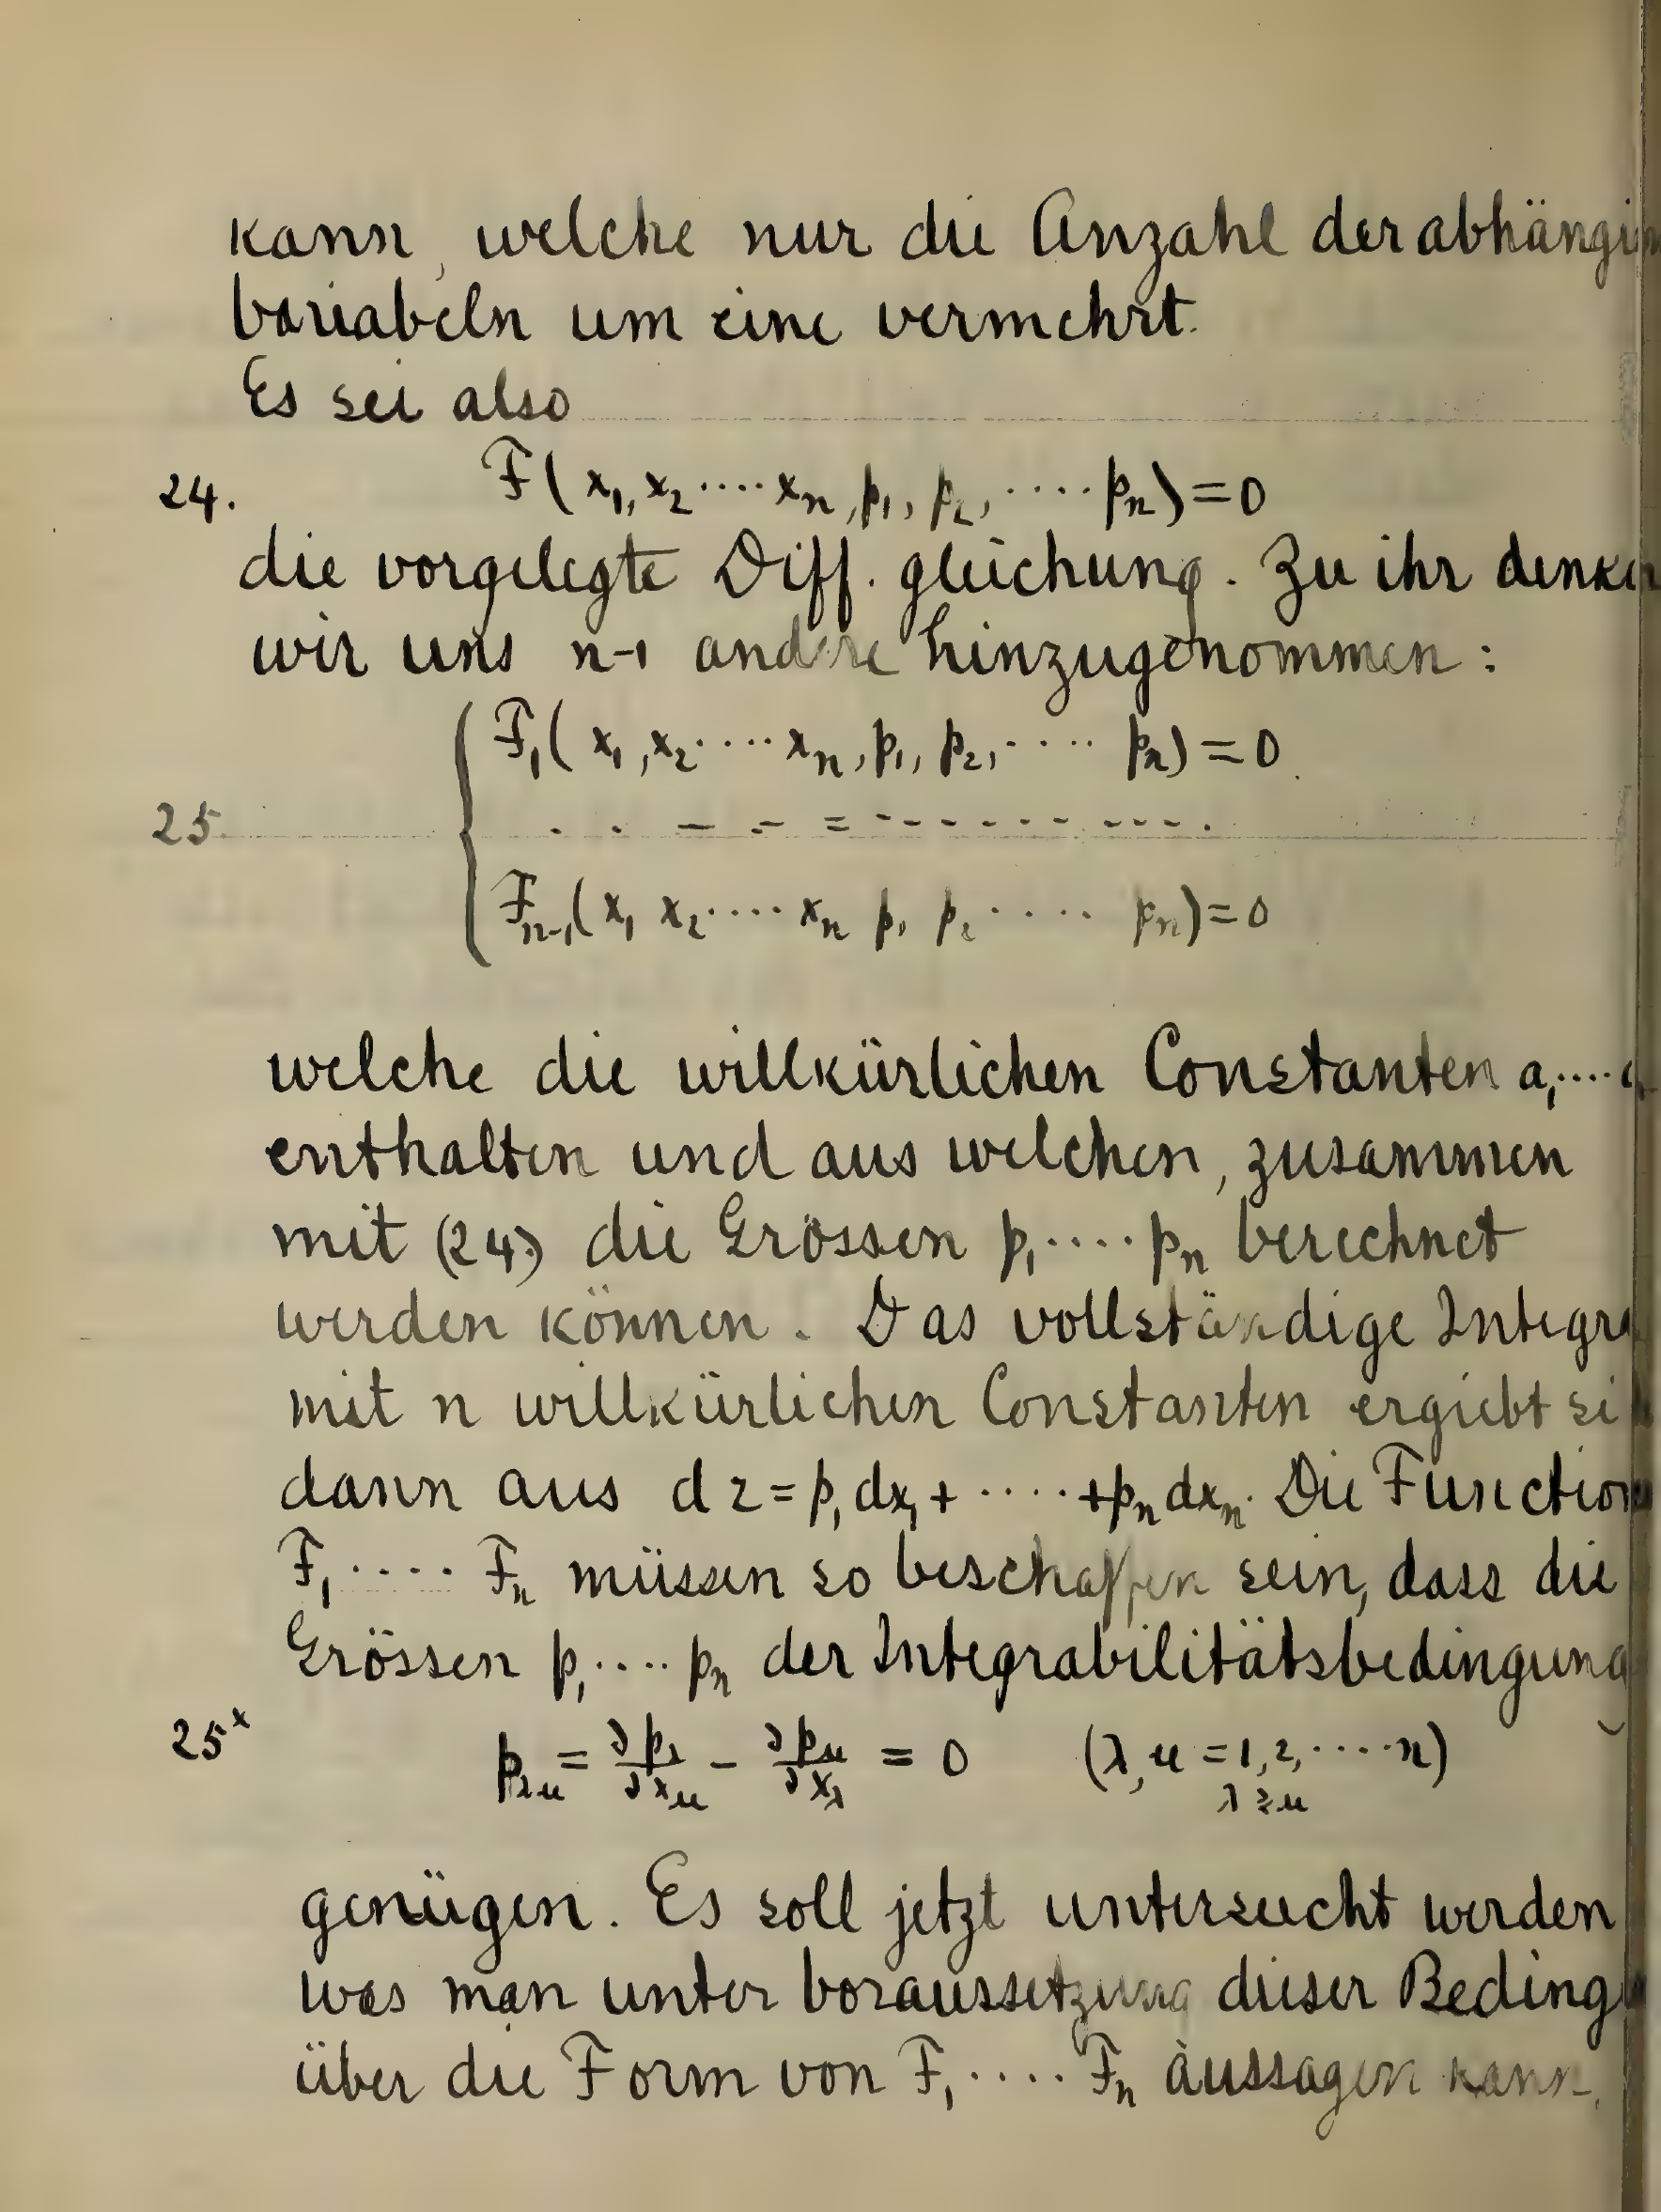 kann, welche nur die Anzahl der abhängi
Variabeln um eine vermehrt.
Es sei also
24. F(x₁, x₂ ···· xₙ, p₁, p₂, ····· pₙ) = 0
die vorgelegte Diff. gleichung. Zu ihr denke
wir uns n-1 andere hinzugenommen:
F₁(x₁, x₂ ···· xₙ, p₁, p₂, ···· pₙ) = 0
25
Fₙ₋₁(x₁ x₂ ···· xₙ p₁ p₂ ····· pₙ) = 0
welche die willkürlichen Constanten a₁····
enthalten und aus welchen, zusammen
mit (24) die Grössen p₁···· pₙ berechnet
werden können. Das vollständige Integra
mit n willkürlichen Constanten ergiebt si
dann aus dz = p₁dx₁ + ····· + pₙdxₙ. Die Function
F₁ ····· Fₙ müssen so beschaffen sein, dass die
Grössen p₁···· pₙ der Integrabilitätsbedingung
25ˣ p_λμ = ∂p_λ/∂x_μ - ∂p_μ/∂x_λ = 0 (λ, μ = 1, 2, ····· n)
λ ≷ μ
genügen. Es soll jetzt untersucht werden
was man unter Voraussetzung dieser Beding
über die Form von F₁ ···· Fₙ aussagen kann.